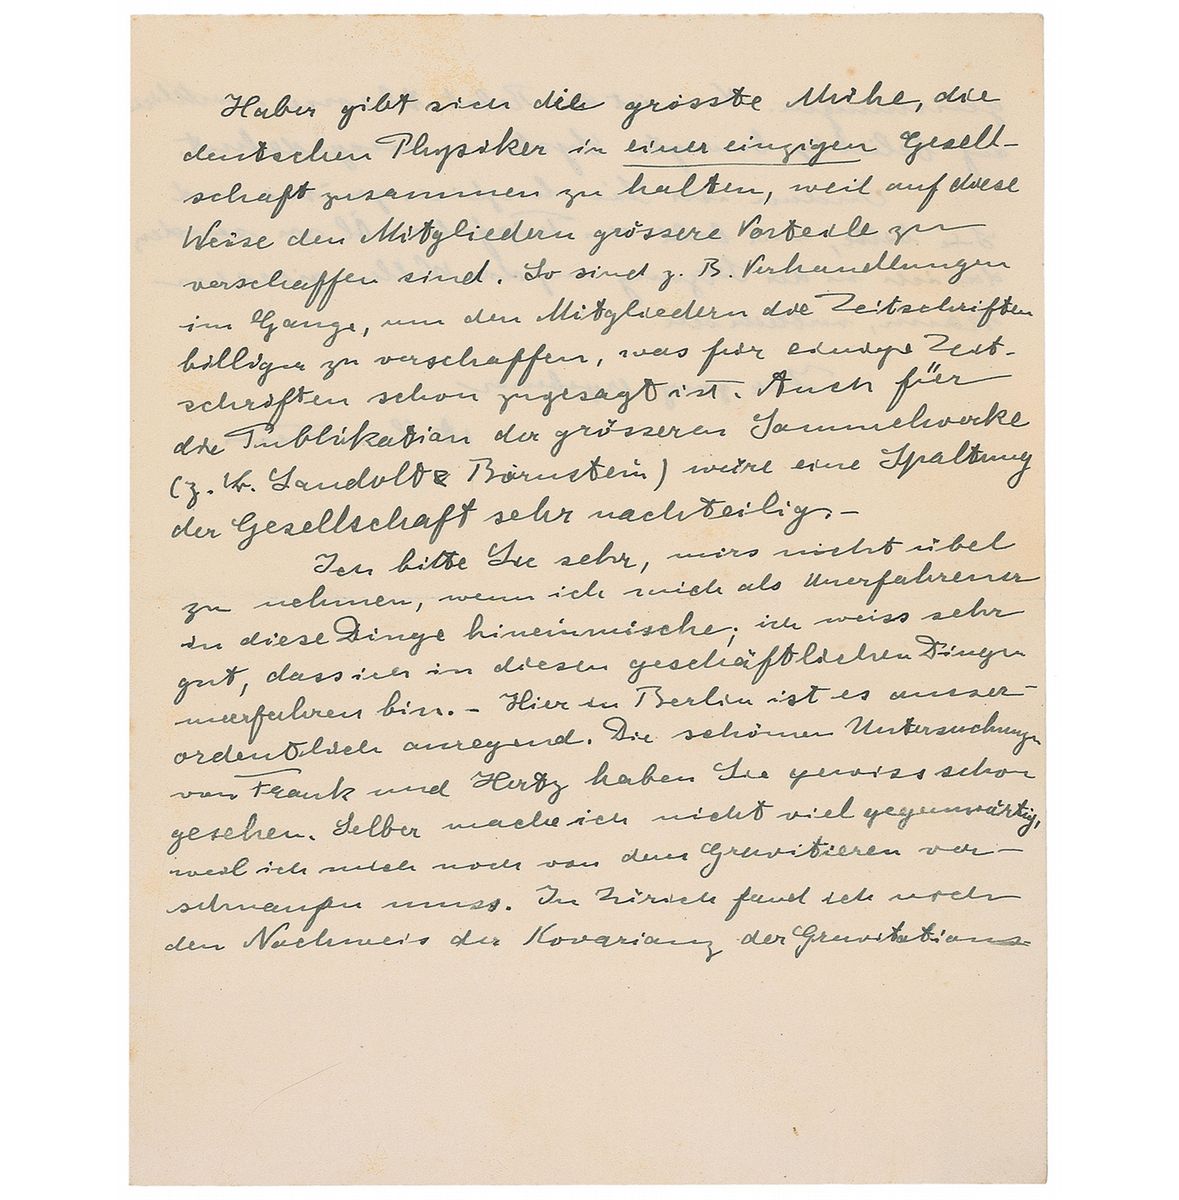 Haber gibt sich die grösste Mühe, die
deutschen Physiker in einer einzigen Gesell-
schaft zusammen zu halten, weil auf diese
Weise den Mitgliedern grössere Vorteile zu
verschaffen sind. So sind z. B. Verhandlungen
im Gange, um den Mitgliedern die Zeitschriften
billiger zu verschaffen, was für einige Zeit-
schriften schon zugesagt ist. Auch für
die Publikation der grösseren Sammelwerke
(z. B. Landolt & Börnstein) wäre eine Spaltung
der Gesellschaft sehr nachteilig. –
Ich bitte Sie sehr, mirs nicht übel
zu nehmen, wenn ich mich als Unerfahrener
in diese Dinge hineinmische; ich weiss sehr
gut, dass ich in diesen geschäftlichen Dingen
unerfahren bin. – Hier in Berlin ist es ausser-
ordentlich anregend. Die schönen Untersuchungen
von Frank und Hertz haben Sie gewiss schon
gesehen. Selber mache ich nicht viel gegenwärtig,
weil ich mich noch von dem Gravitieren ver-
schnaufen muss. In Zürich fand ich noch
den Nachweis der Kovarianz der Gravitations-